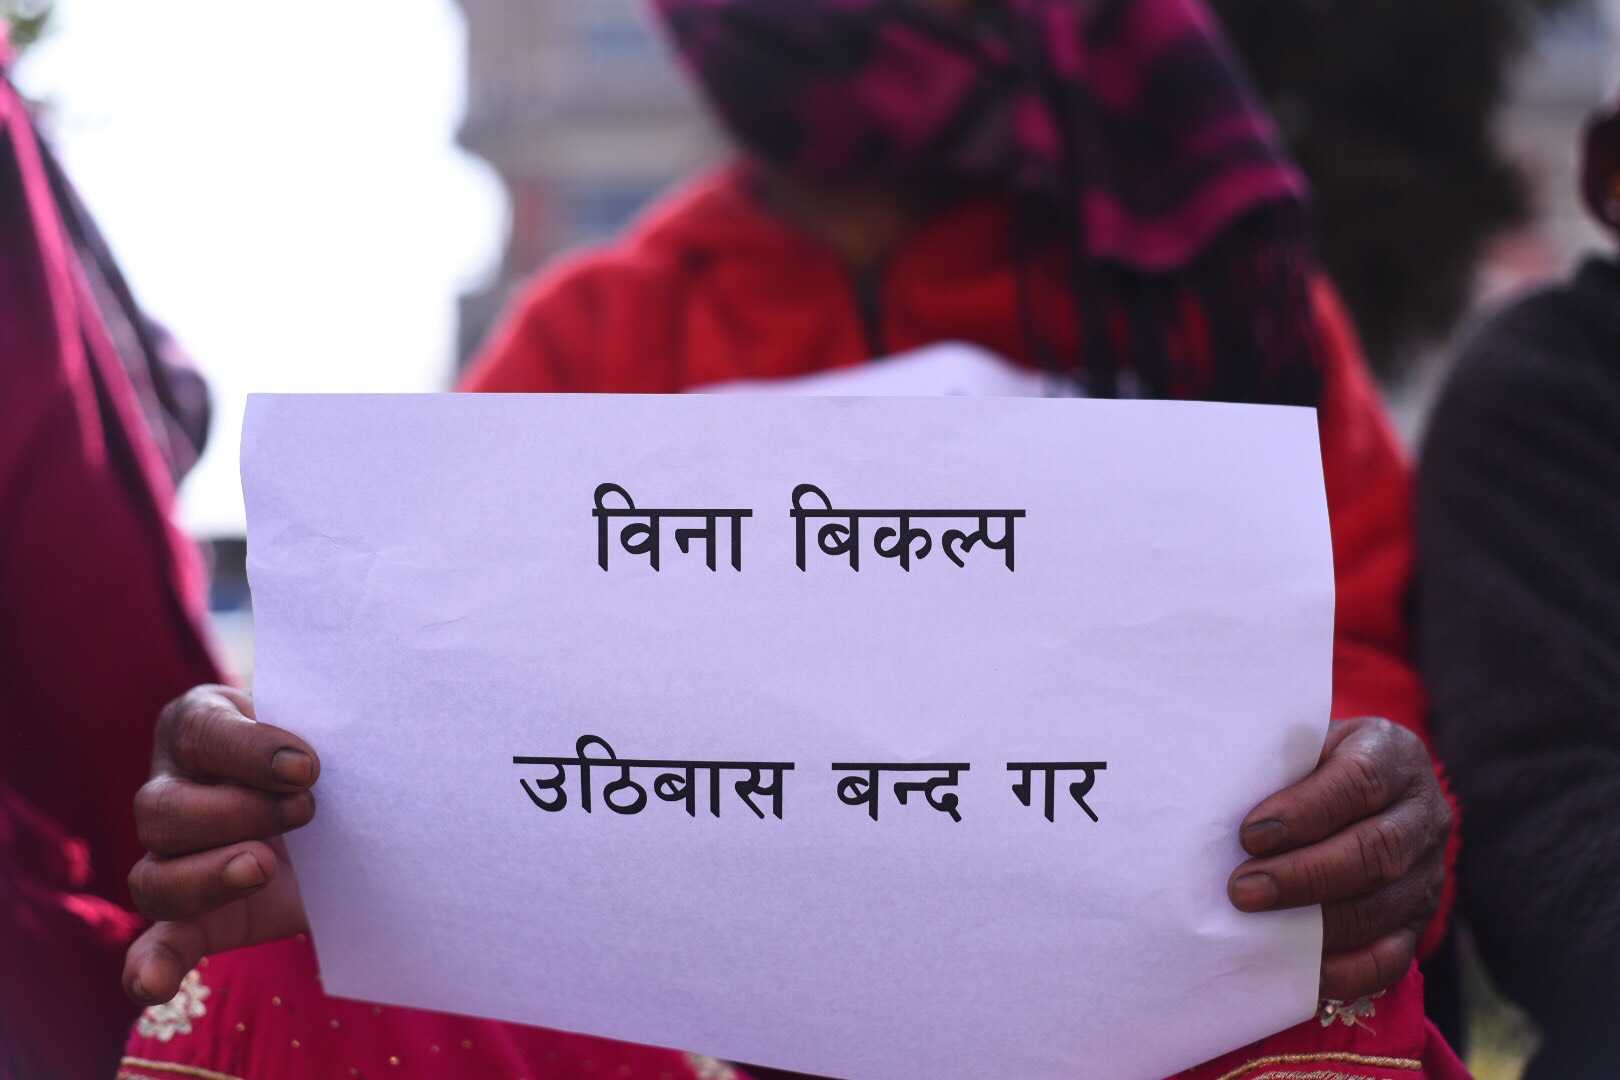 विना बिकल्प
उठिबास बन्द गर